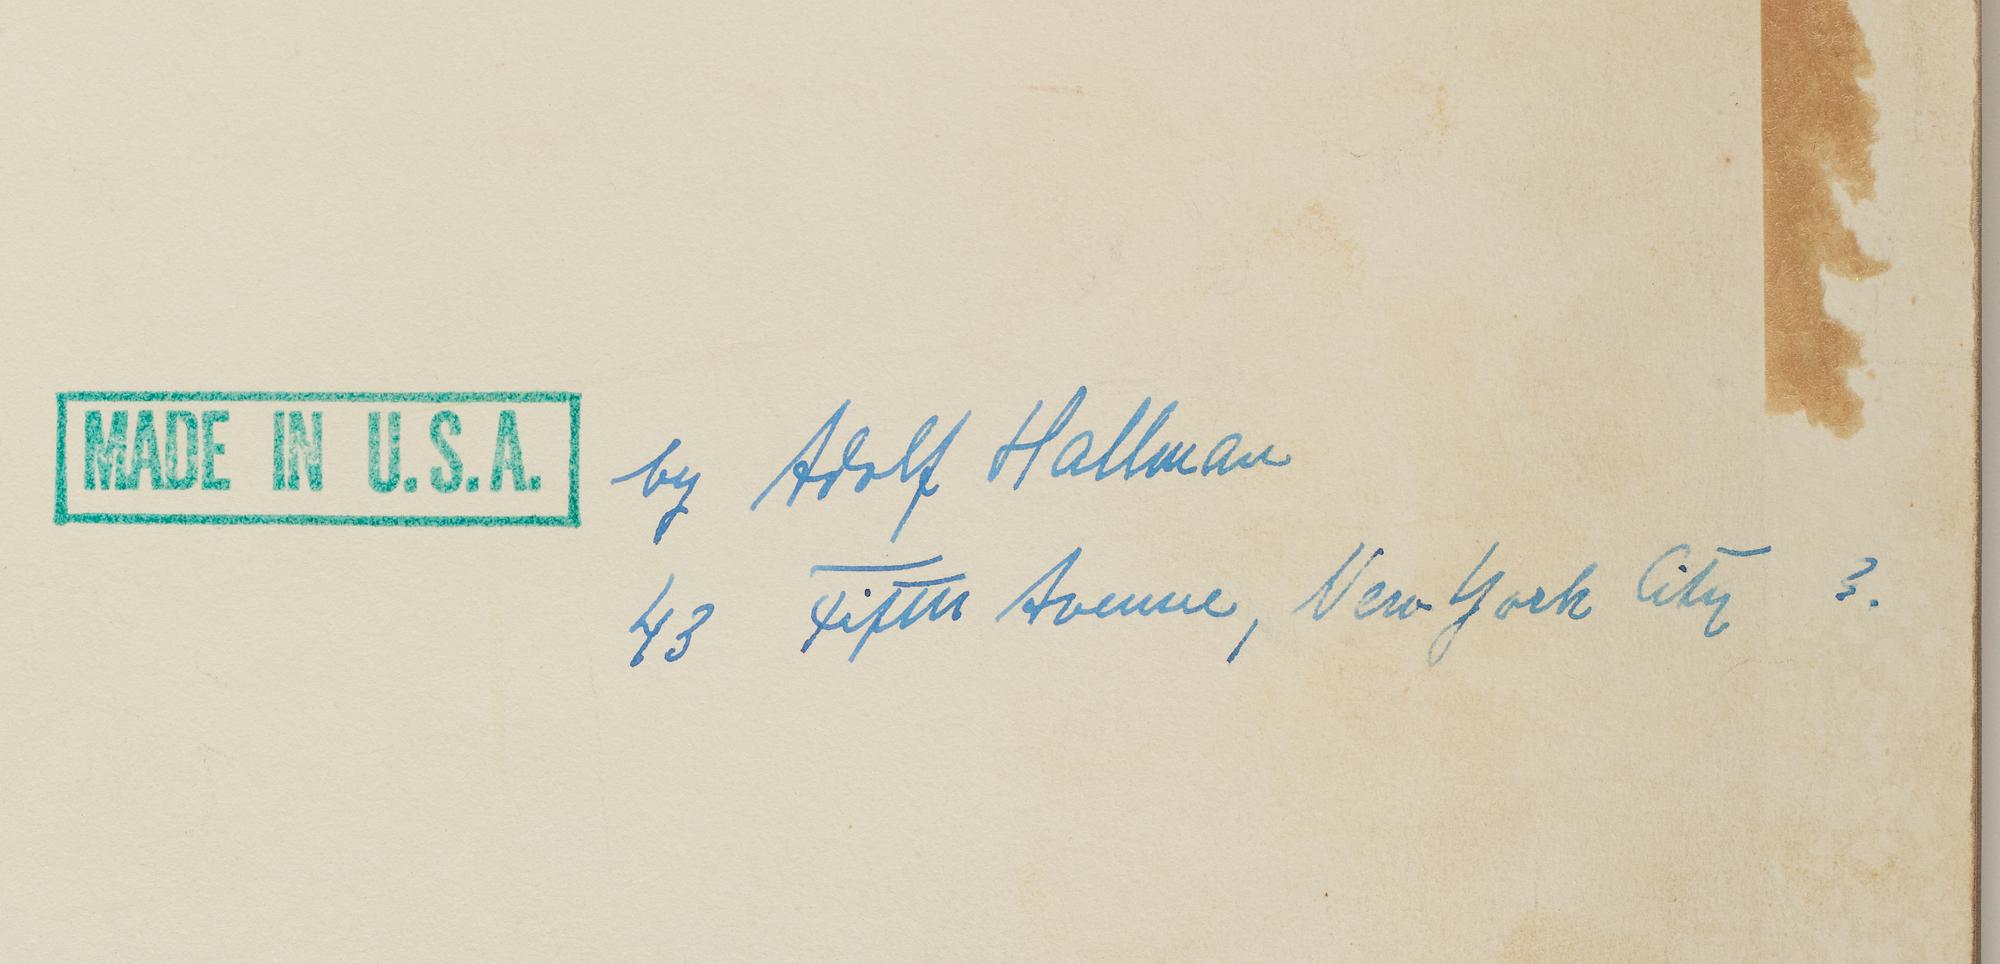 MADE IN U.S.A. by Adolf Hallman
43 Fifth Avenue, New York City 3.